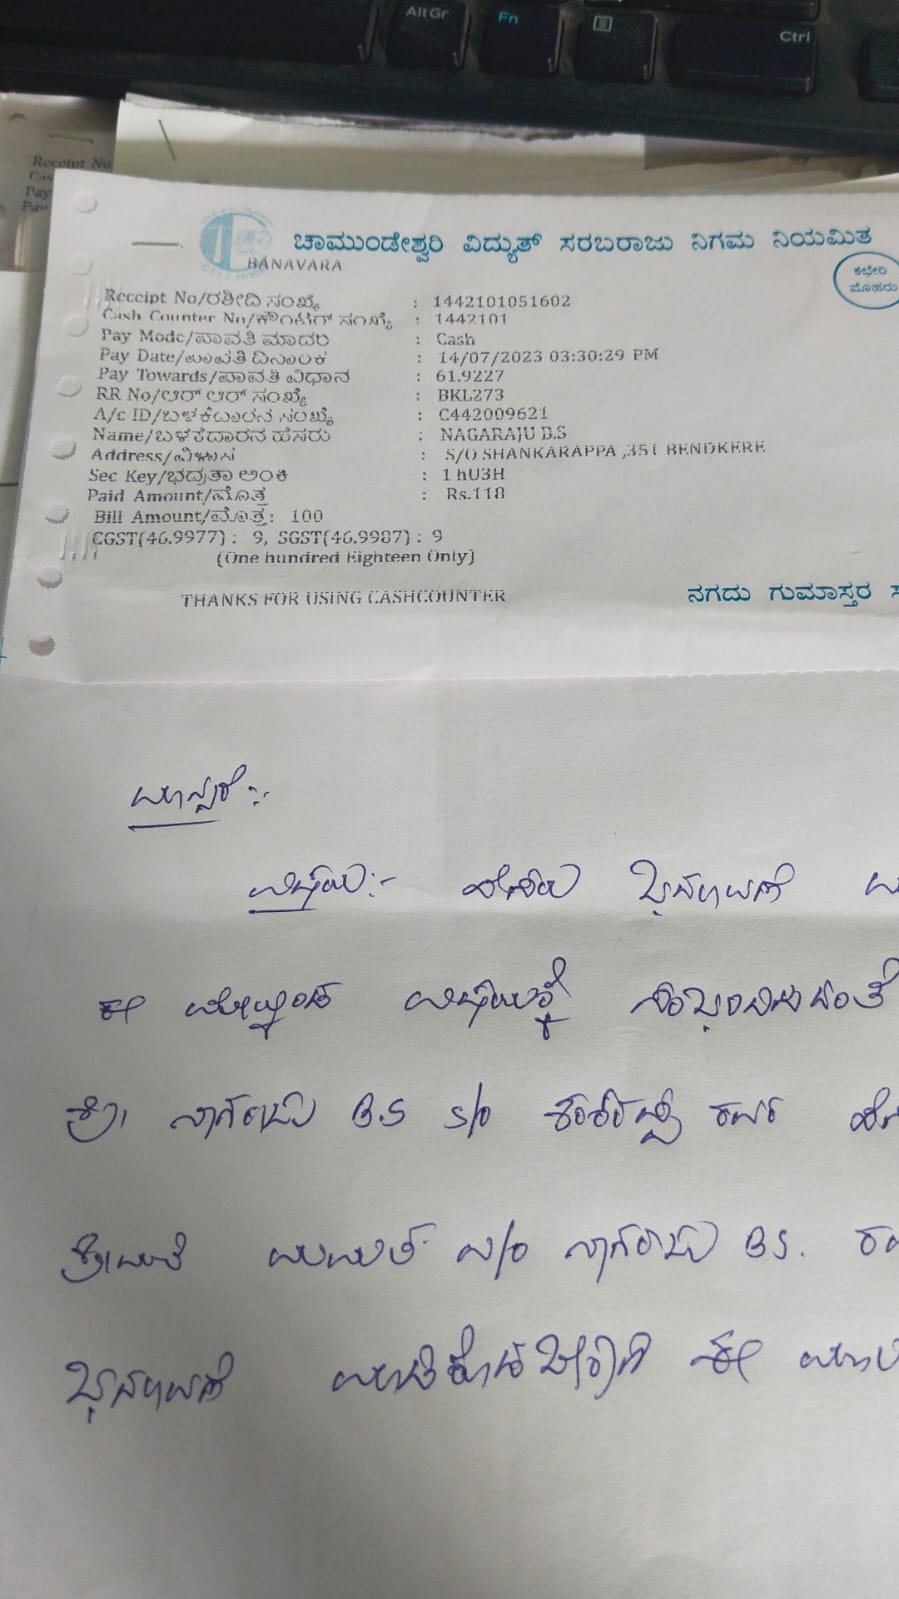 AltGr Fn Ctrl
Receipt No
Pay
ಚಾಮುಂಡೇಶ್ವರಿ ವಿದ್ಯುತ್ ಸರಬರಾಜು ನಿಗಮ ನಿಯಮಿತ
BANAVARA
ಕಛೇರಿ
ಮೊಹರು
Receipt No/ರಶೀದಿ ಸಂಖ್ಯೆ : 1442101051602
Cash Counter No/ಕೌಂಟರ್ ಸಂಖ್ಯೆ : 1442101
Pay Mode/ಪಾವತಿ ಮಾದರಿ : Cash
Pay Date/ಪಾವತಿ ದಿನಾಂಕ : 14/07/2023 03:30:29 PM
Pay Towards/ಪಾವತಿ ವಿಧಾನ : 61.9227
RR No/ಆರ್ ಆರ್ ಸಂಖ್ಯೆ : BKL273
A/c ID/ಬಳಕೆದಾರನ ಸಂಖ್ಯೆ : C442009621
Name/ಬಳಕೆದಾರನ ಹೆಸರು : NAGARAJU B.S
Address/ವಿಳಾಸ : S/O SHANKARAPPA ,351 BENDKERE
Sec Key/ಭದ್ರತಾ ಅಂಕಿ : 1hU3H
Paid Amount/ಮೊತ್ತ : Rs.118
Bill Amount/ಮೊತ್ತ: 100
CGST(46.9977) : 9, SGST(46.9987) : 9
(One hundred Eighteen Only)
THANKS FOR USING CASHCOUNTER
ನಗದು ಗುಮಾಸ್ತರ
ವಿಷಯ:- ಹೆಸರು ಬದಲಾವಣೆ
ಈ ಮೇಲ್ಕಂಡ ವಿಷಯಕ್ಕೆ ಸಂಬಂಧಿಸಿದಂತೆ
ಶ್ರೀ ನಾಗರಾಜು B.S S/o ಶಂಕರಪ್ಪ ರವರ
ಶ್ರೀಮತಿ W/o ನಾಗರಾಜು B.S.
ಬದಲಾವಣೆ ಮಾಡಿಕೊಡಬೇಕಾಗಿ ಈ